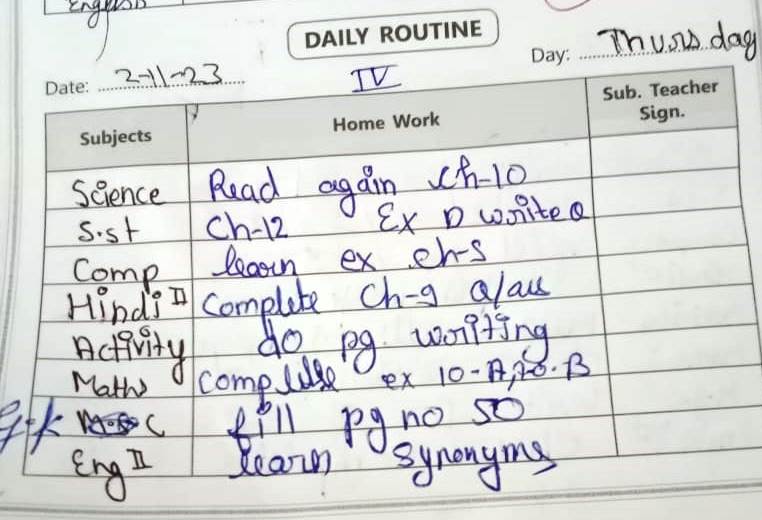 English
DAILY ROUTINE
Date: 2-11-23 IV Day: Thursday
Subjects Home Work Sub. Teacher Sign.
Science Read again ch-10
S.st Ch-12 Ex D write Q
Comp learn ex ch-5
Hindi II Complete Ch-9 Q/ans
Activity do pg. writing
Maths complete ex 10-A, 10-B
G.K C fill pg no 50
Eng II learn synonyms